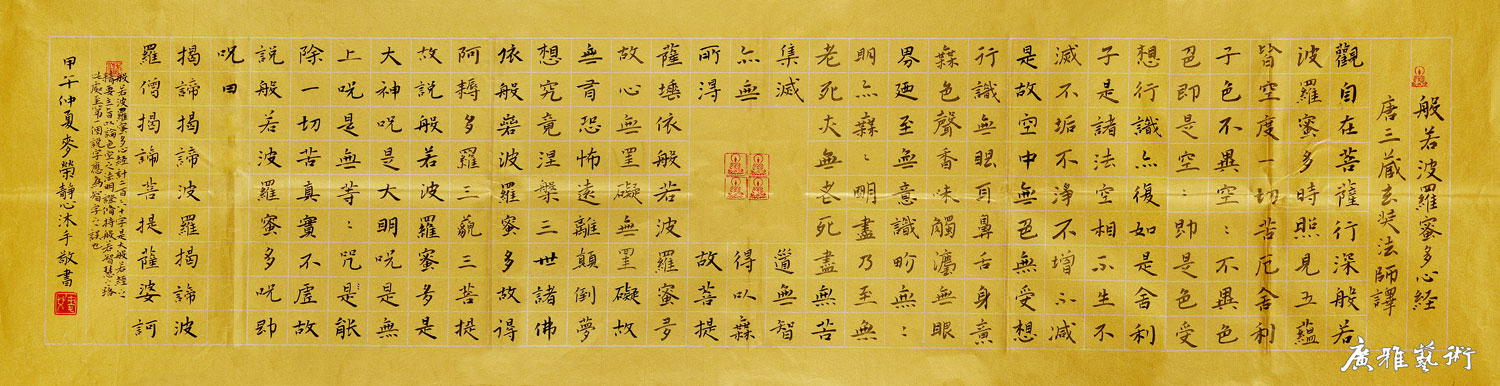 般若波羅蜜多心経
唐三藏玄奘法師譯
觀自在菩薩行深般若
波羅蜜多時照見五蘊
皆空度一切苦厄舍利
子色不異空：不異色
色即是空：即是色受
想行識亦復如是舍利
子是諸法空相不生不
滅不垢不淨不增不減
是故空中無色無受想
行識無眼耳鼻舌身意
無色聲香味觸灋無眼
界廼至無意識界無：
明亦無：明盡乃至無
老死亦無老死盡無苦
集滅道無智
亦無得以無
所得故菩提
薩埵依般若波羅蜜多
故心無罣礙無罣礙故
無有恐怖遠離顛倒夢
想究竟涅槃三世諸佛
依般若波羅蜜多故得
阿耨多羅三藐三菩提
故説般若波羅蜜多是
大神咒是大明咒是無
上咒是無等：咒是能
除一切苦真實不虛故
説般若波羅蜜多咒即
咒曰
揭諦揭諦波羅揭諦波
羅僧揭諦菩提薩婆訶
般若波羅蜜多心経計二百六十字是大般若経之
精要主旨以論色空之法明證脩持般若智慧之路
第一個説字應為
字之誤也
甲午仲夏麥榮靜心沐手敬書
廣雅藝術